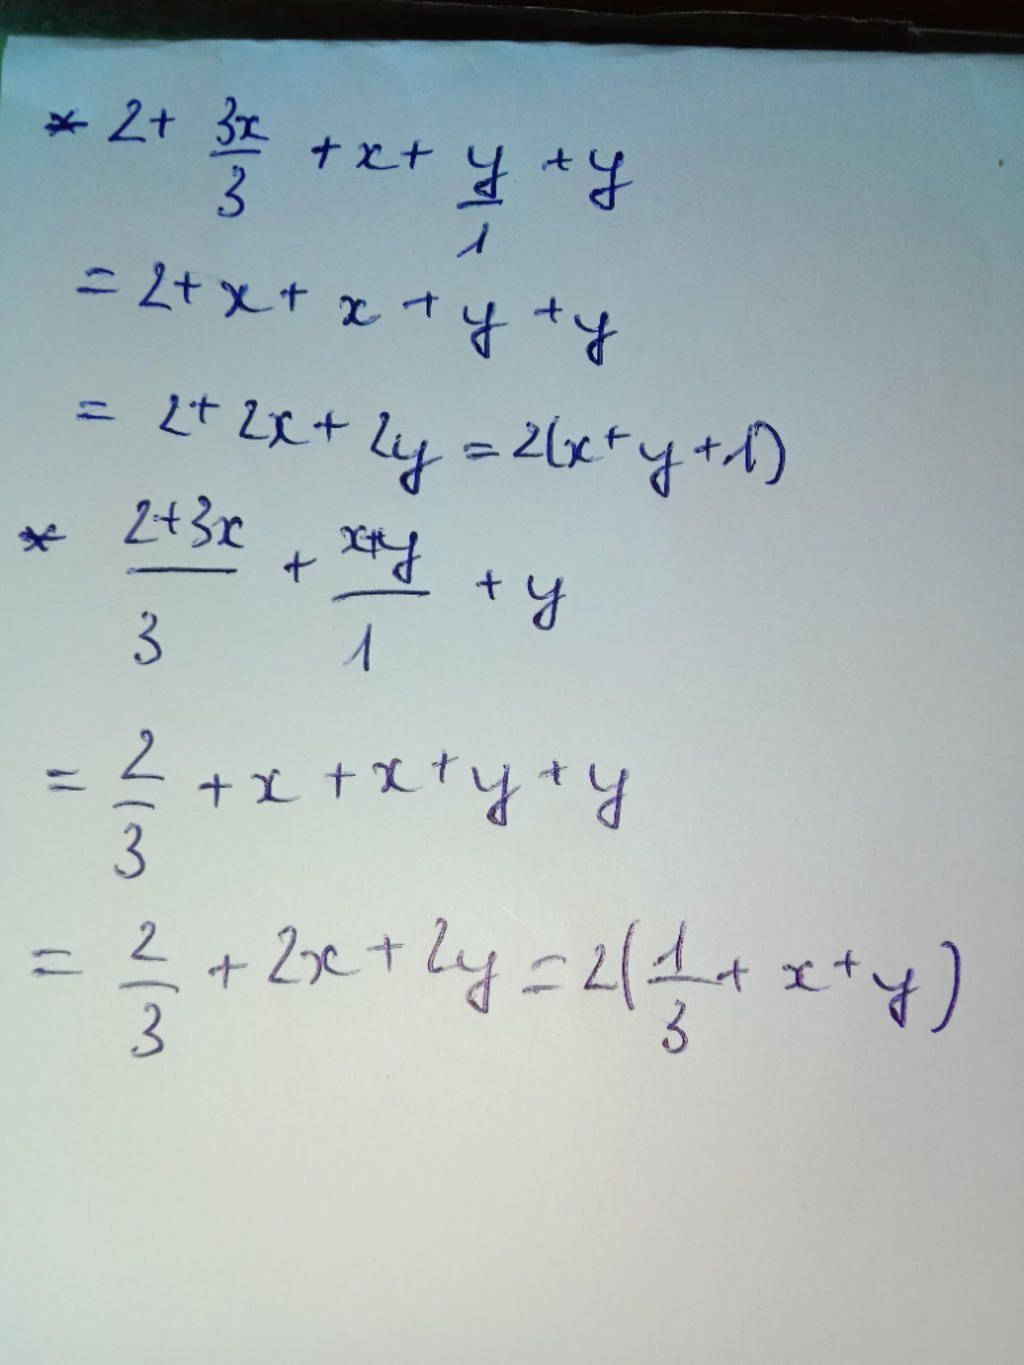 * 2 + 3x/3 + x + y/1 + y
= 2 + x + x + y + y
= 2 + 2x + 2y = 2(x + y + 1)
* (2+3x)/3 + (x+y)/1 + y
= 2/3 + x + x + y + y
= 2/3 + 2x + 2y = 2(1/3 + x + y)